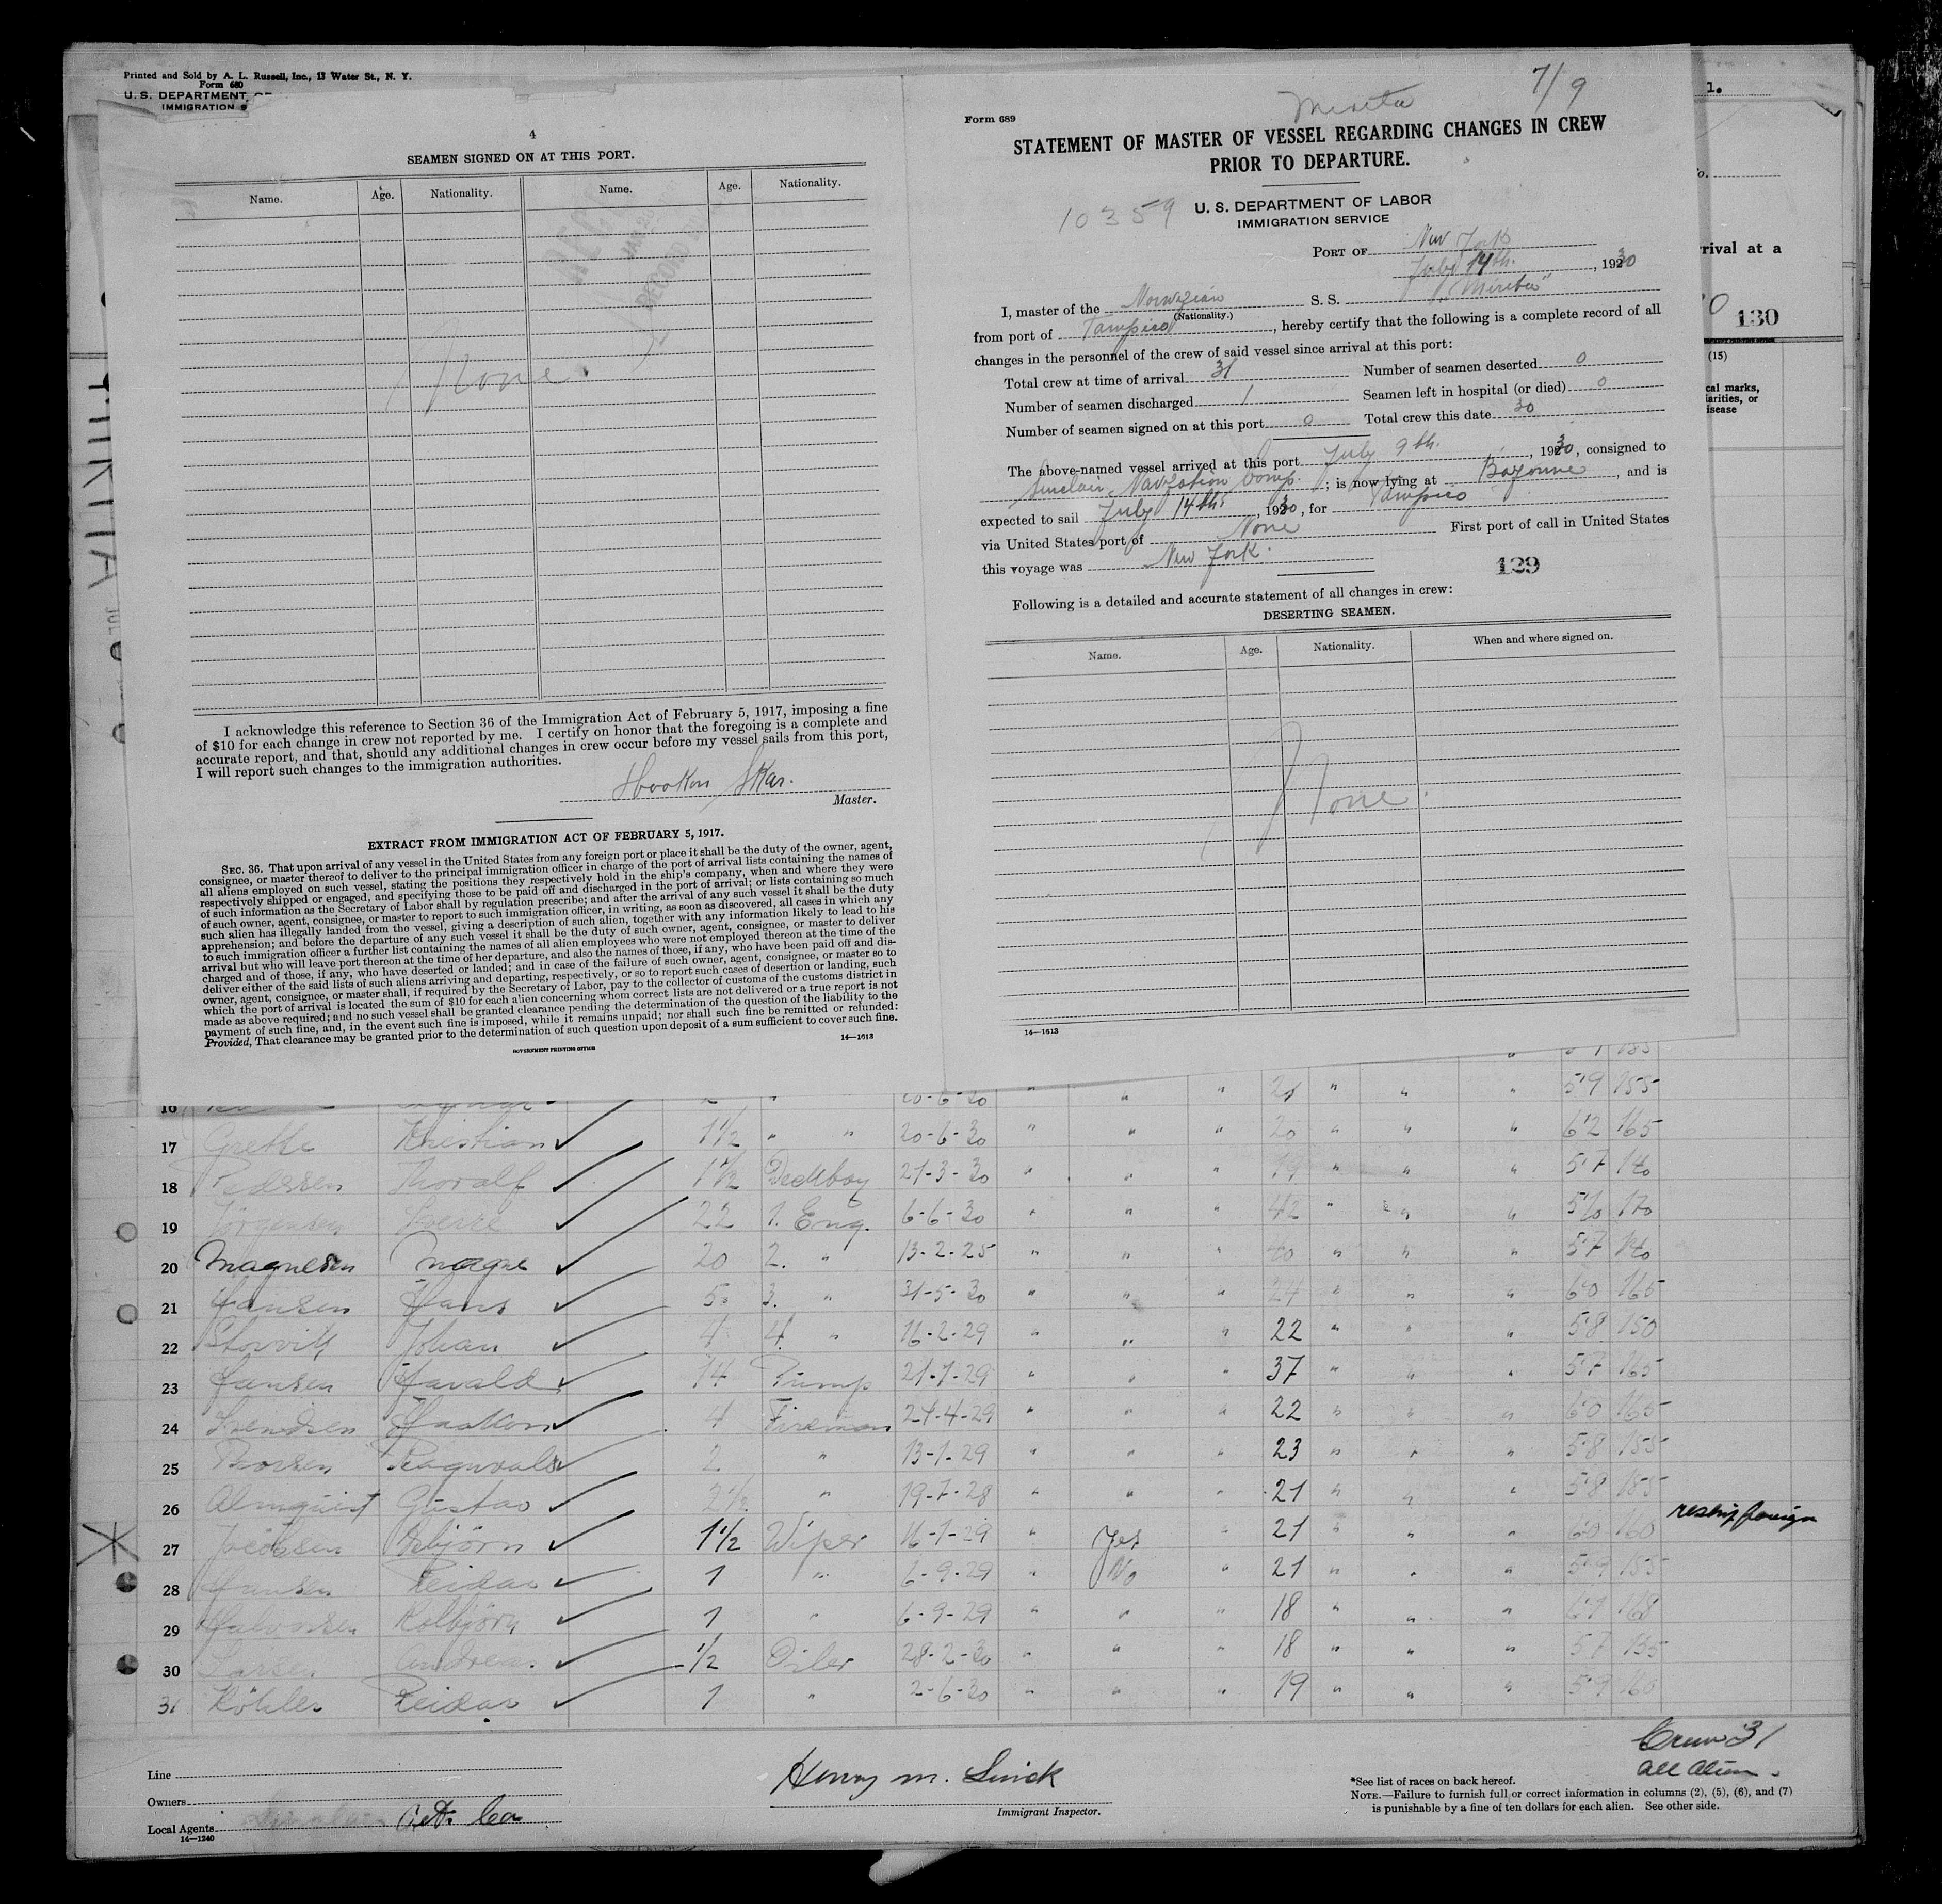 Printed and Sold by A. L. Russell, Inc., 13 Water St., N. Y.
Form 680
U. S. DEPARTMENT OF
IMMIGRATION S
4
SEAMEN SIGNED ON AT THIS PORT.
Name. Age. Nationality. Name. Age. Nationality.
None.
I acknowledge this reference to Section 36 of the Immigration Act of February 5, 1917, imposing a fine
of $10 for each change in crew not reported by me. I certify on honor that the foregoing is a complete and
accurate report, and that, should any additional changes in crew occur before my vessel sails from this port,
I will report such changes to the immigration authorities.
Haakon Skar.
Master.
EXTRACT FROM IMMIGRATION ACT OF FEBRUARY 5, 1917.
SEC. 36. That upon arrival of any vessel in the United States from any foreign port or place it shall be the duty of the owner, agent,
consignee, or master thereof to deliver to the principal immigration officer in charge of the port of arrival lists containing the names of
all aliens employed on such vessel, stating the positions they respectively hold in the ship's company, when and where they were
respectively shipped or engaged, and specifying those to be paid off and discharged in the port of arrival; or lists containing so much
of such information as the Secretary of Labor shall by regulation prescribe; and after the arrival of any such vessel it shall be the duty
of such owner, agent, consignee, or master to report to such immigration officer, in writing, as soon as discovered, all cases in which any
such alien has illegally landed from the vessel, giving a description of such alien, together with any information likely to lead to his
apprehension; and before the departure of any such vessel it shall be the duty of such owner, agent, consignee, or master to deliver
to such immigration officer a further list containing the names of all alien employees who were not employed thereon at the time of the
arrival but who will leave port thereon at the time of her departure, and also the names of those, if any, who have been paid off and dis-
charged and of those, if any, who have deserted or landed; and in case of the failure of such owner, agent, consignee, or master so to
deliver either of the said lists of such aliens arriving and departing, respectively, or so to report such cases of desertion or landing, such
owner, agent, consignee, or master shall, if required by the Secretary of Labor, pay to the collector of customs of the customs district in
which the port of arrival is located the sum of $10 for each alien concerning whom correct lists are not delivered or a true report is not
made as above required; and no such vessel shall be granted clearance pending the determination of the question of the liability to the
payment of such fine, and, in the event such fine is imposed, while it remains unpaid; nor shall such fine be remitted or refunded:
Provided, That clearance may be granted prior to the determination of such question upon deposit of a sum sufficient to cover such fine.
14—1613
GOVERNMENT PRINTING OFFICE
Mirita 7/9
Form 689
STATEMENT OF MASTER OF VESSEL REGARDING CHANGES IN CREW
PRIOR TO DEPARTURE.
10359
U. S. DEPARTMENT OF LABOR
IMMIGRATION SERVICE
PORT OF New York
July 14th. , 1930
I, master of the Norwegian S. S. "Mirita"
(Nationality.)
from port of Tampico , hereby certify that the following is a complete record of all
changes in the personnel of the crew of said vessel since arrival at this port:
Total crew at time of arrival 31 Number of seamen deserted 0
Number of seamen discharged 1 Seamen left in hospital (or died) 0
Number of seamen signed on at this port 0 Total crew this date 30
The above-named vessel arrived at this port July 9th. , 1930, consigned to
Sinclair Navigation Comp. ; is now lying at Bayonne , and is
expected to sail July 14th. , 1930, for Tampico
via United States port of None First port of call in United States
this voyage was New York.
129
Following is a detailed and accurate statement of all changes in crew:
DESERTING SEAMEN.
Name. Age. Nationality. When and where signed on.
None.
14—1613
1.
rival at a
130
(15)
cal marks,
larities, or
isease
MIRITA
16 20-6-30 " " " 21 " " " 5'9 155
17 Grette Kristian 1½ " " 20-6-30 " " " 20 " " " 6'2 165
18 Pedersen Thoralf 1½ Deckboy 21-3-30 " " 19 " " " 5'7 140
19 Jörgensen Sverre 22 1. Eng. 6-6-30 " " " 42 " " " 5'10 170
20 Magnesen Magne 20 2. " 13-2-25 " " " 40 " " " 5'7 140
21 Hansen Hans 5 3. " 31-5-30 " " " 24 " " " 6'0 165
22 Storvik Johan 4 4. " 16-2-29 " " " 22 " " " 5'8 150
23 Jansen Harald 14 Pump 21-7-29 " " " 37 " " " 5'7 165
24 Svendsen Haakon 4 Fireman 24-4-29 " " " 22 " " " 6'0 165
25 Thorsen Ragnvald 2 " 13-1-29 " " " 23 " " " 5'8 155
26 Almquist Gustav 2½ " 19-7-28 " " " 21 " " " 5'8 155
27 Jacobsen Asbjörn 1½ Wiper 16-1-29 " Yes " 21 " " " 6'0 160 reship foreign
28 Hansen Reidar 1 " 6-9-29 " No " 21 " " " 5'9 155
29 Halvorsen Kolbjörn 1 " 6-9-29 " " " 18 " " " 6'1 168
30 Larsen Andreas ½ Oiler 28-2-30 " " " 18 " " " 5'7 135
31 Köhler Reidar 1 " 2-6-30 " " " 19 " " " 5'9 160
Crew 31
All Alien.
Line
Owners
Local Agents
14—1240
Henry M.
Immigrant Inspector.
*See list of races on back hereof.
NOTE.—Failure to furnish full or correct information in columns (2), (5), (6), and (7)
is punishable by a fine of ten dollars for each alien. See other side.